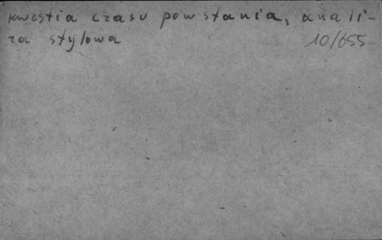 kwestia czasu powstania, anali-
za stylowa 10/655